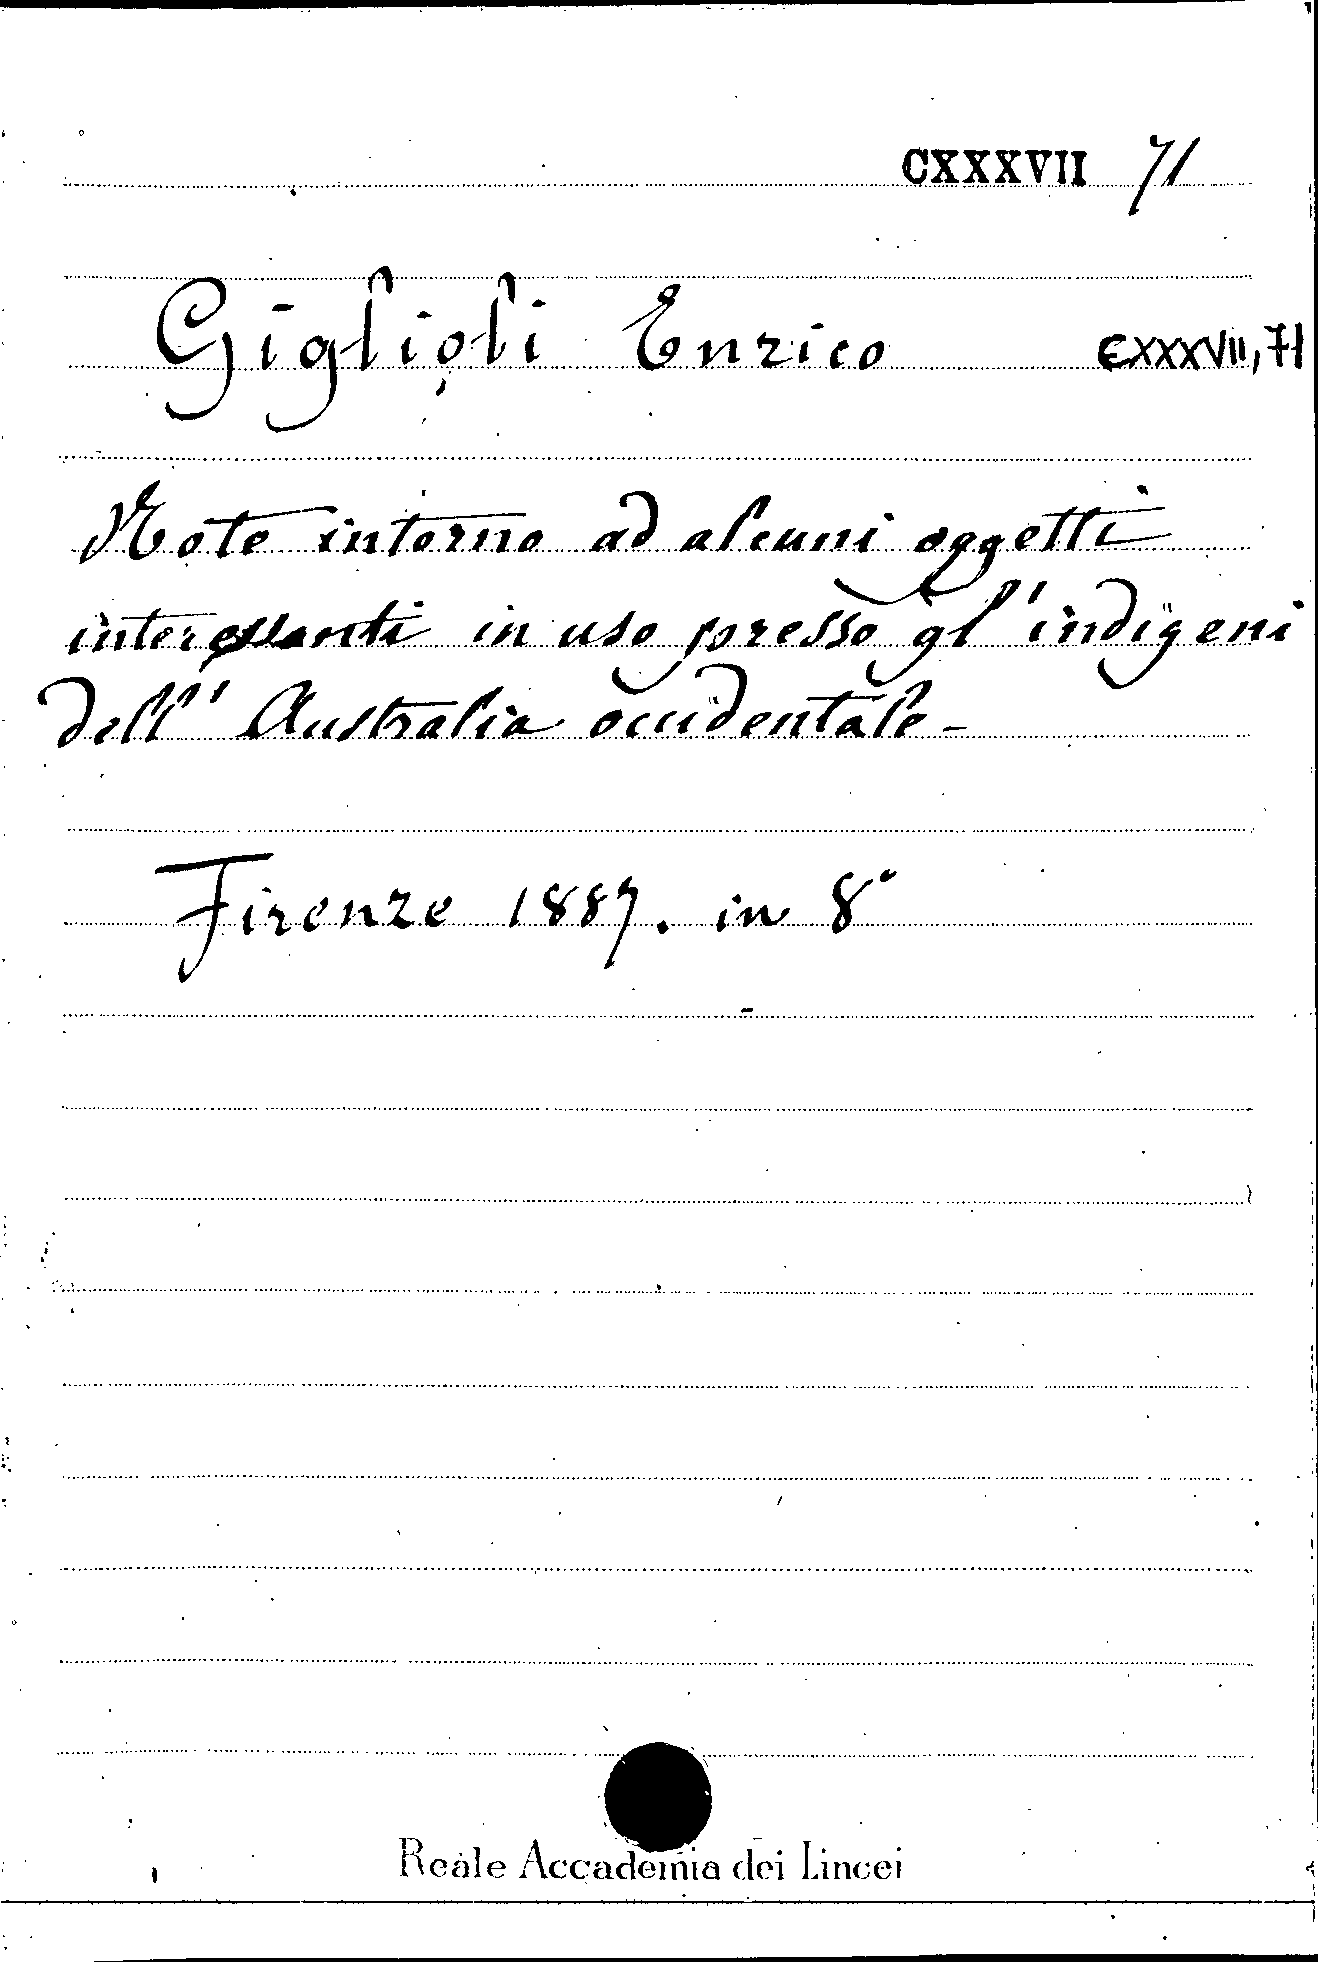 CXXXVII 71
Giglioli Enrico CXXXVII, 71
Note intorno ad alcuni oggetti
interessanti in uso presso gl'indigeni
dell'Australia occidentale -
Firenze 1887. in 8°
Reale Accademia dei Lincei